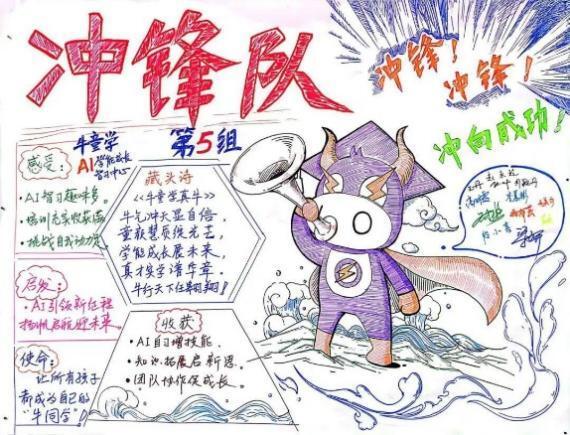 冲锋队
第5组
冲锋!
冲锋!
冲向成功!
牛童学
AI学能成长
智习中心
感受:
·AI智习趣味多。
·培训充实收获满
·挑战自我
启发:
·AI引领新征程
扬帆启航迎未来.
使命:
让所有孩子
都成为自己的
“牛同学”!
藏头诗
《牛童学真牛》
牛气冲天显自信,
童
学能成长展未来,
真才实学谱华章.
牛行天下任翱翔!
收获
·AI自习增技能.
·知识拓展启新思.
·团队协作促成长.